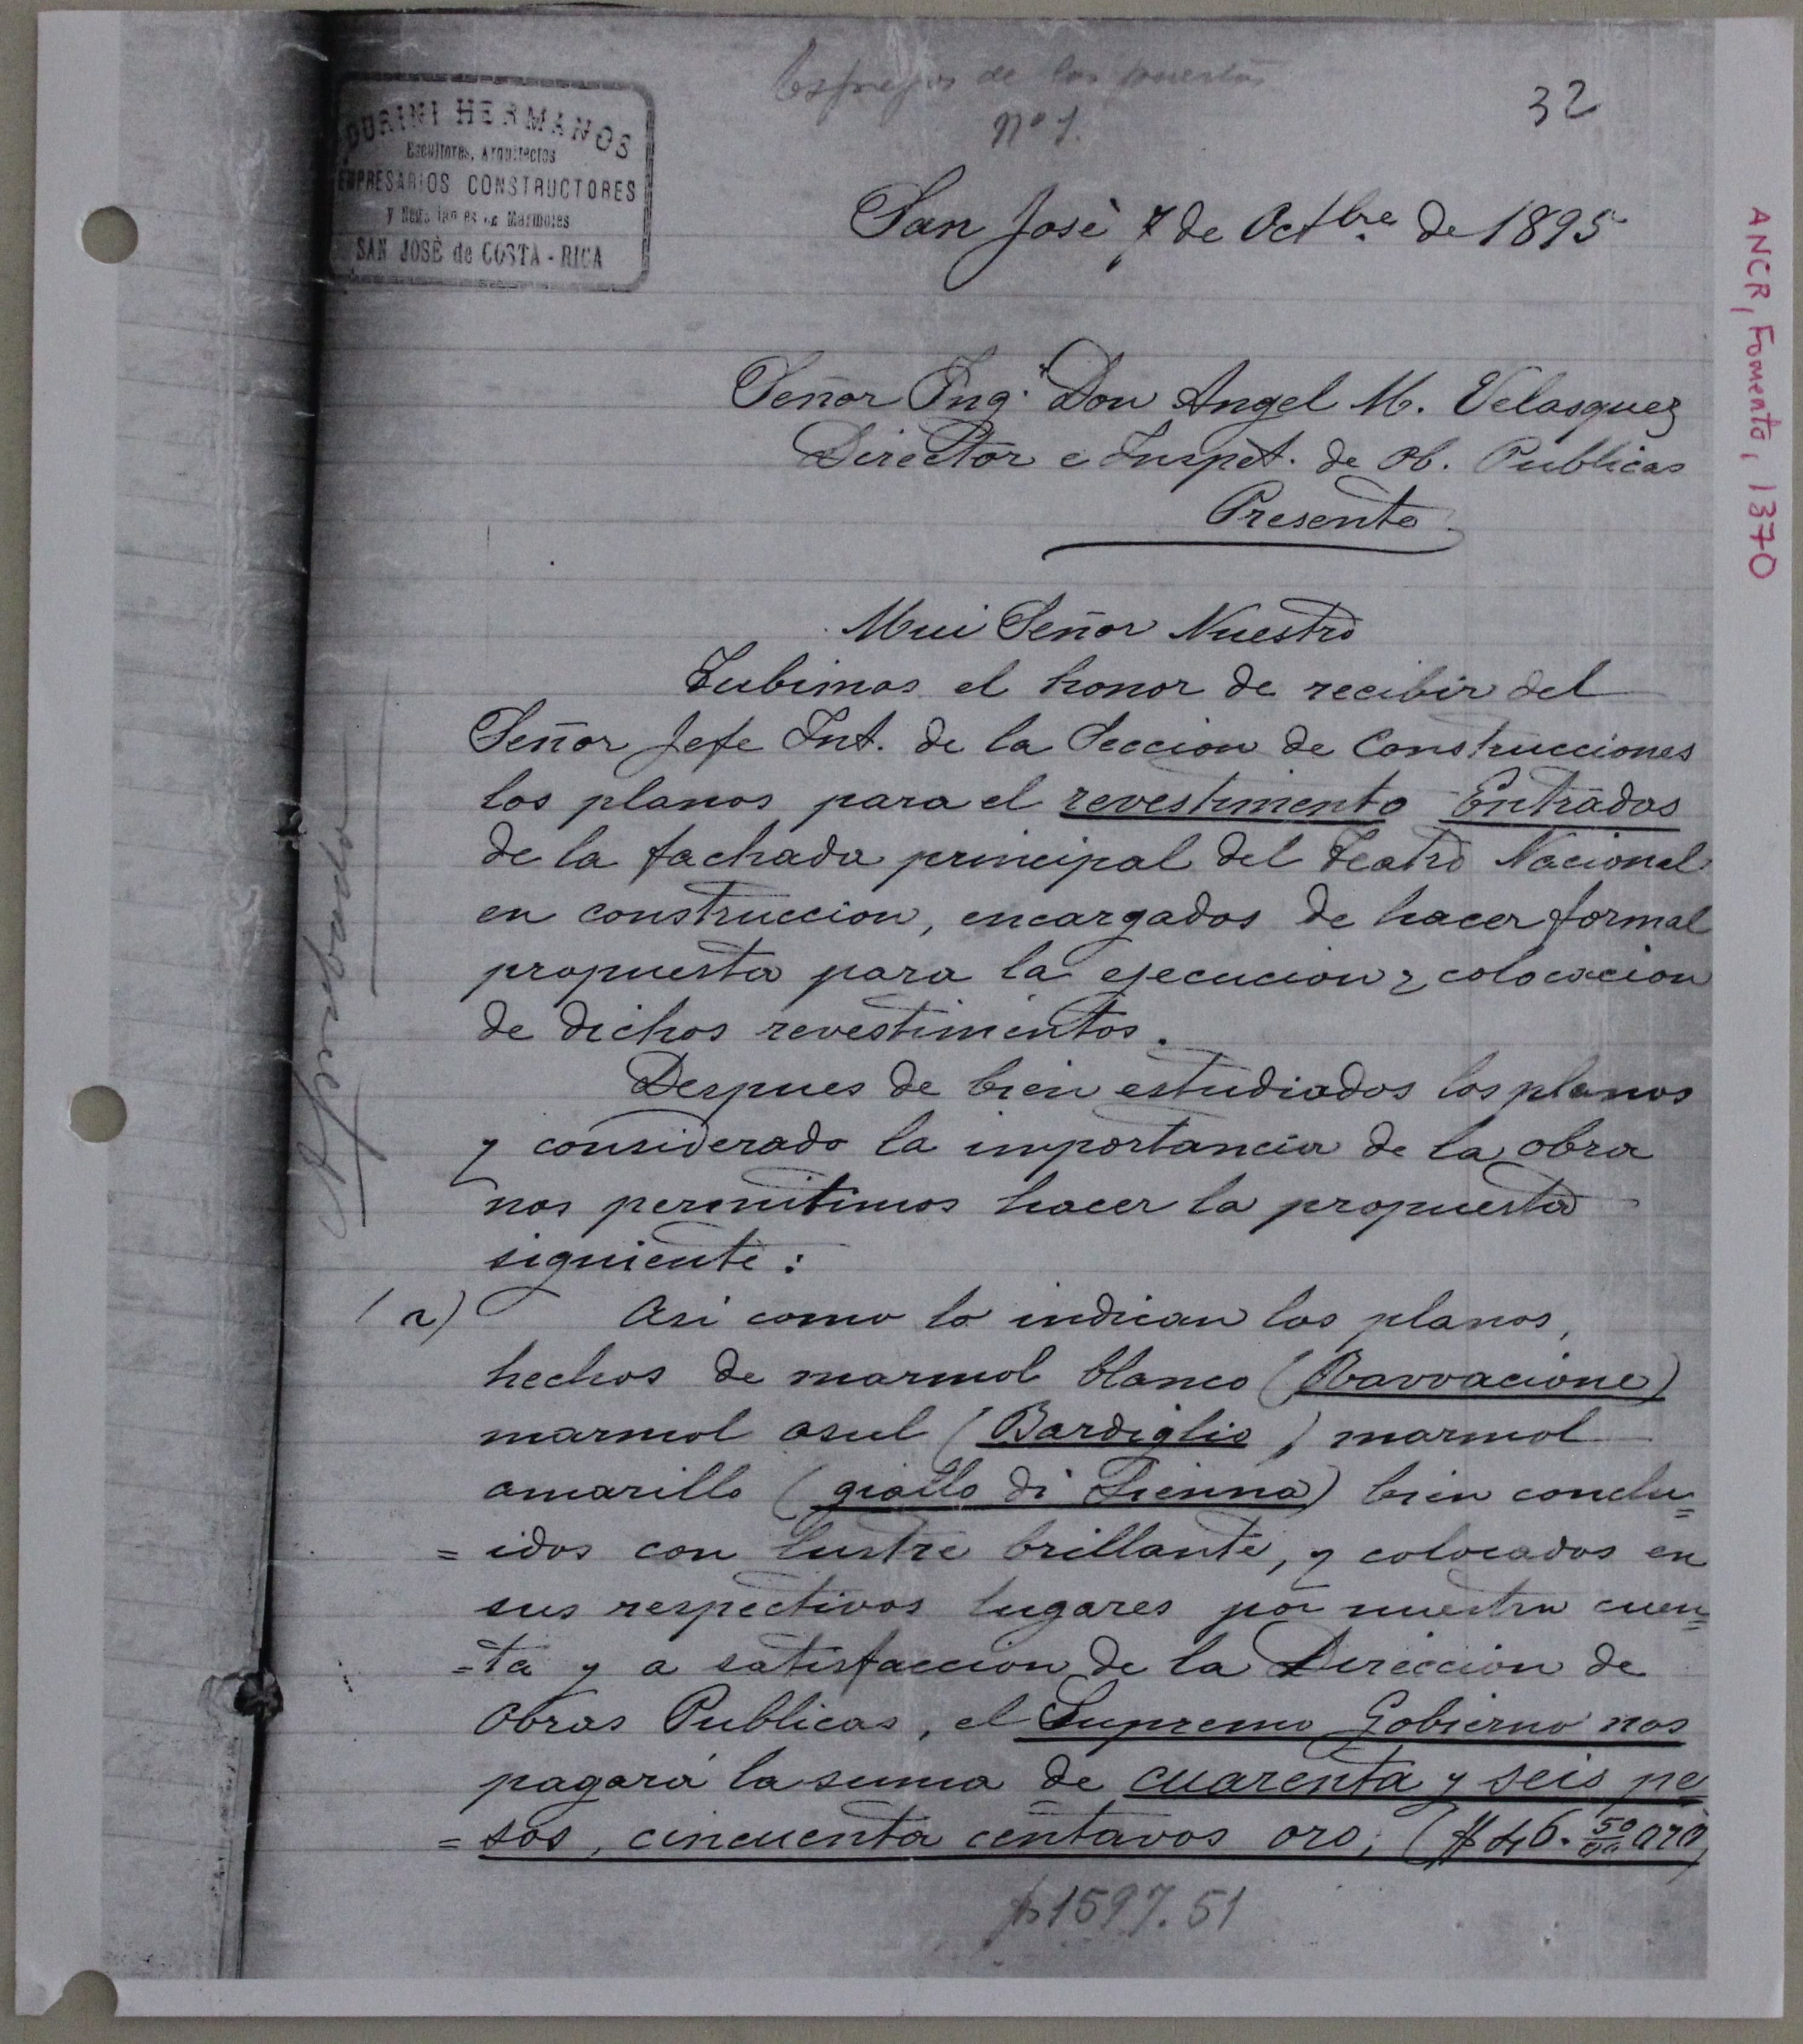 DURINI HERMANOS
Escultores, Arquitectos
EMPRESARIOS CONSTRUCTORES
y Marmoles
SAN JOSÉ de COSTA-RICA
de las puertas
nº 1.
32
San José 7 de Octbre de 1895
ANCR, Fomento, 1370
Señor Ing. Don Angel M. Velasquez
Director e Inspet. de Ob. Publicas
Presente
Mui Señor Nuestro
Tubimos el honor de recibir del
Señor Jefe Int. de la Seccion de Construcciones
los planos para el revestimento Entradas
de la fachada principal del Teatro Nacional
en construccion, encargados de hacer formal
propuesta para la ejecucion y colocacion
de dichos revestimentos.
Despues de bien estudiados los planos
y considerado la importancia de la obra
nos permitimos hacer la propuesta
siguiente:
Aprobado
a) Asi como lo indican los planos,
hechos de marmol blanco (Ravvacione)
marmol asul (Bardiglio) marmol
amarillo (giallo di Sienna) bien conclu=
=idos con lustre brillante, y colocados en
sus respectivos lugares por nuestra cuen=
=ta y a satisfaccion de la Direccion de
Obras Publicas, el Supremo Gobierno nos
pagará la suma de cuarenta y seis pe
=sos, cincuenta centavos oro, ($ 46. 50/00 oro)
$1597.51